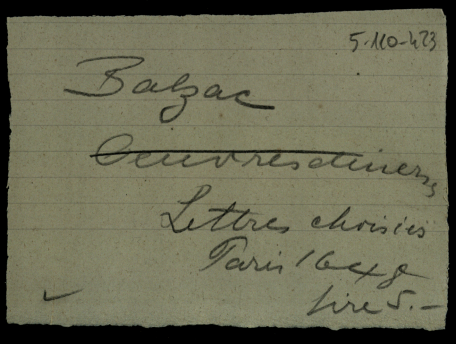 5-110-423
Balzac
Oeuvres diverses
Lettres choisies
Paris 1648
lire 5.-